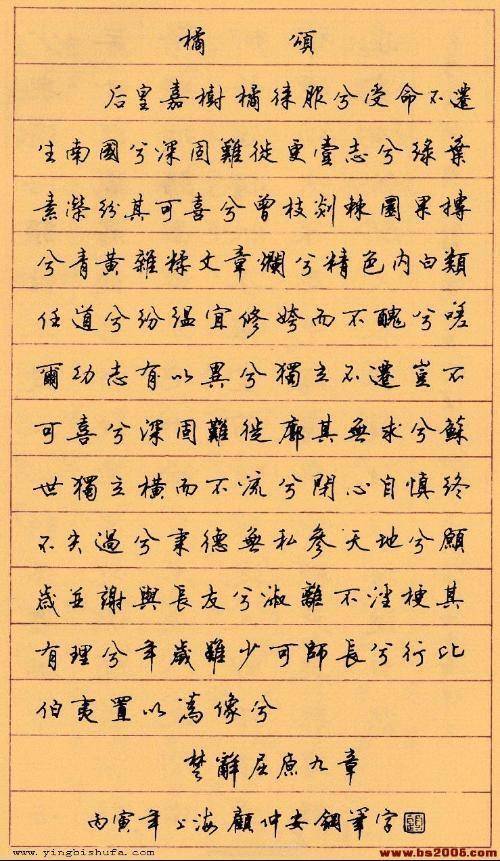 橘頌
后皇嘉樹橘徠服兮受命不遷
生南國兮深固難徙更壹志兮綠葉
素榮紛其可喜兮曾枝剡棘圜果摶
兮青黃雜糅文章爛兮精色內白類
任道兮紛緼宜修姱而不醜兮嗟
爾幼志有以異兮獨立不遷豈不
可喜兮深固難徙廓其無求兮蘇
世獨立橫而不流兮閉心自慎終
不失過兮秉德無私參天地兮願
歲並謝與長友兮淑離不淫梗其
有理兮年歲雖少可師長兮行比
伯夷置以為像兮
楚辭屈原九章
丙寅年上海顧仲安鋼筆字
www.yingbishufa.com
www.bs2005.com